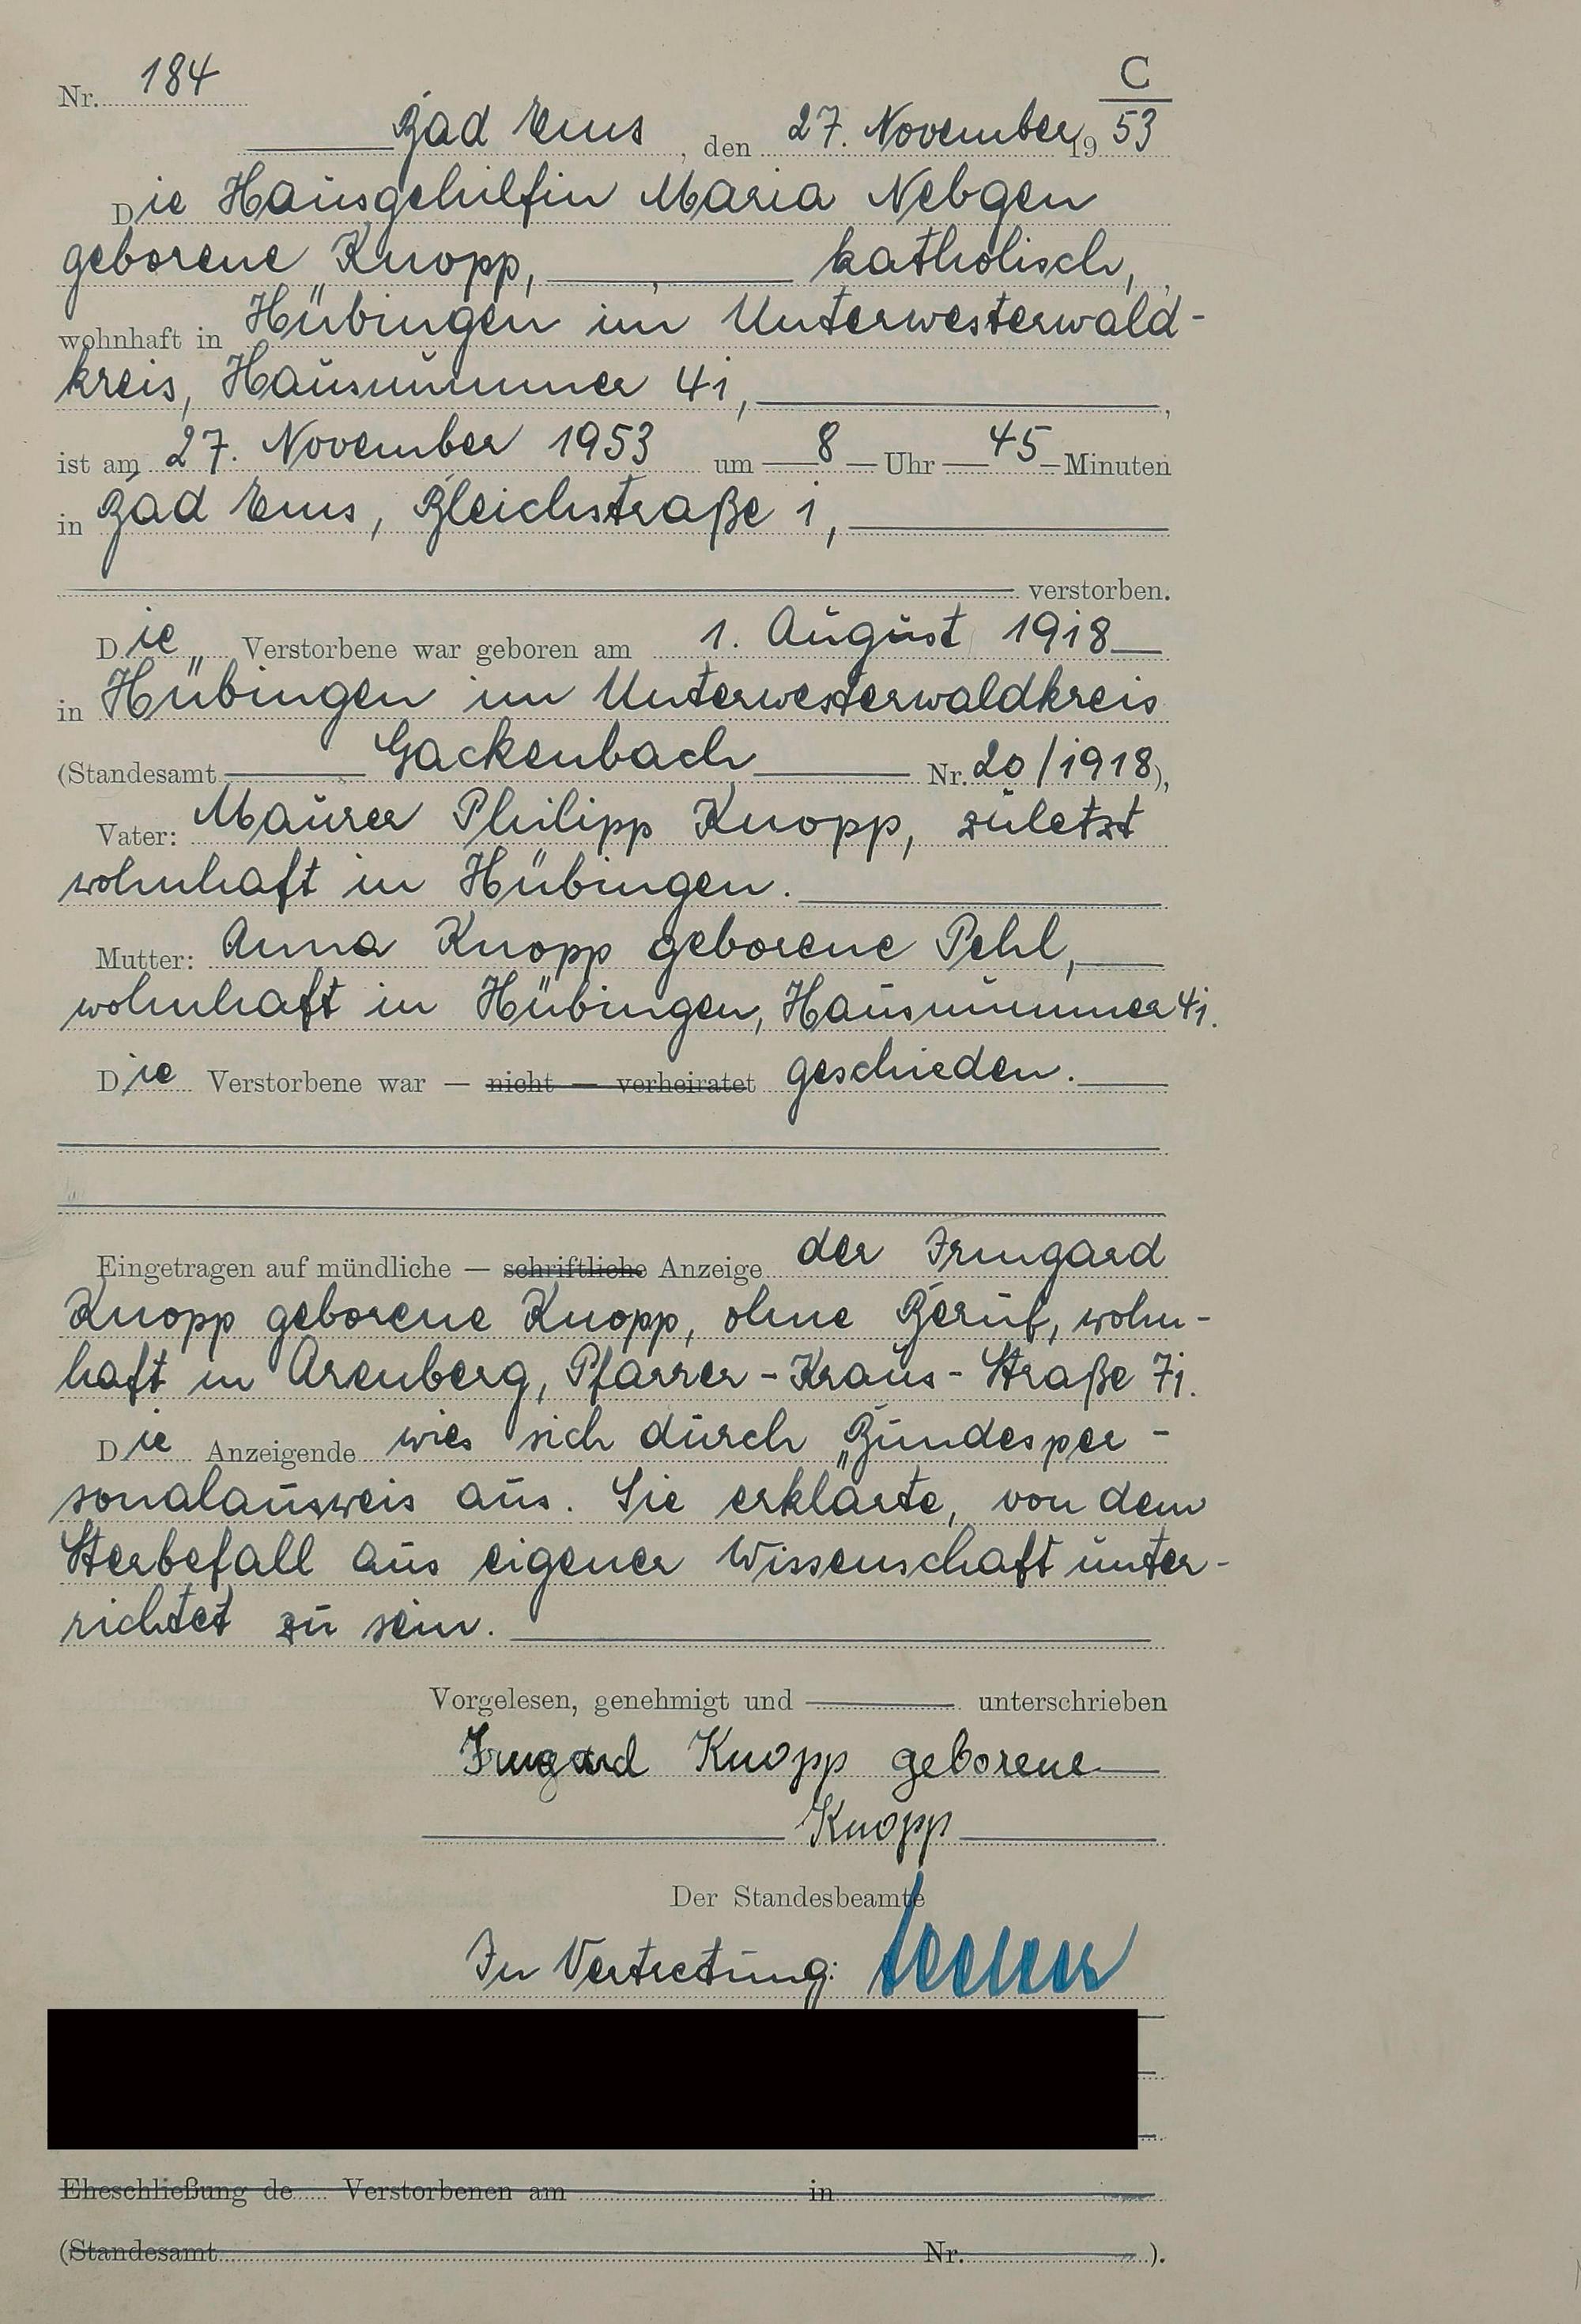 C
Nr. 184
Bad Ems, den 27. November 19 53
Die Hausgehilfin Maria Nebgen
geborene Knopp, katholisch,
wohnhaft in Hübingen im Unterwesterwald-
kreis, Hausnummer 41,
ist am 27. November 1953 um 8 Uhr 45 Minuten
in Bad Ems, Bleichstraße 1,
verstorben.
Die Verstorbene war geboren am 1. August 1918
in Hübingen im Unterwesterwaldkreis
(Standesamt Gackenbach Nr. 20/1918),
Vater: Maurer Philipp Knopp, zuletzt
wohnhaft in Hübingen.
Mutter: Anna Knopp geborene Pehl,
wohnhaft in Hübingen, Hausnummer 41.
Die Verstorbene war — nicht — verheiratet geschieden.
Eingetragen auf mündliche — schriftliche Anzeige der Irmgard
Knopp geborene Knopp, ohne Beruf, wohn-
haft in Arenberg, Pfarrer-Kraus-Straße 71.
Die Anzeigende wies sich durch Bundesper-
sonalausweis aus. Sie erklärte, von dem
Sterbefall aus eigener Wissenschaft unter-
richtet zu sein.
Vorgelesen, genehmigt und unterschrieben
Irmgard Knopp geborene
Knopp
Der Standesbeamte
In Vertretung:
Eheschließung de Verstorbenen am in
(Standesamt Nr. ).